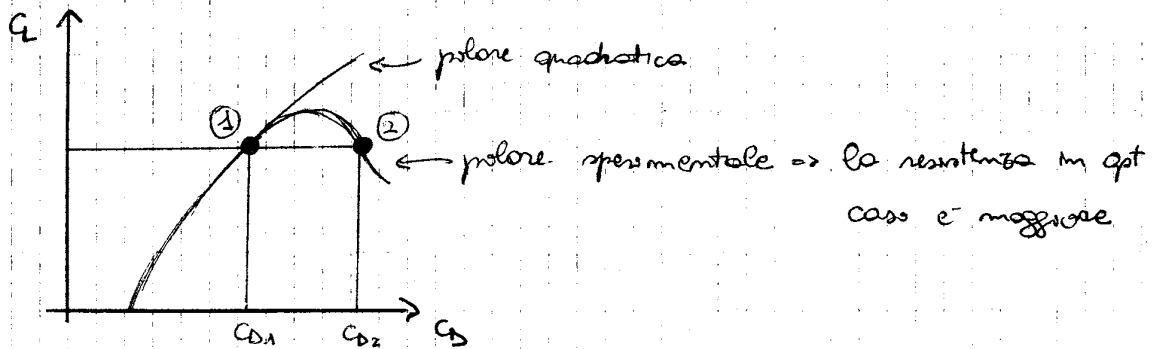 C_L
← polare quadratica
① ②
← polare sperimentale => la resistenza in qst
caso è maggiore
C_D1 C_D2 C_D